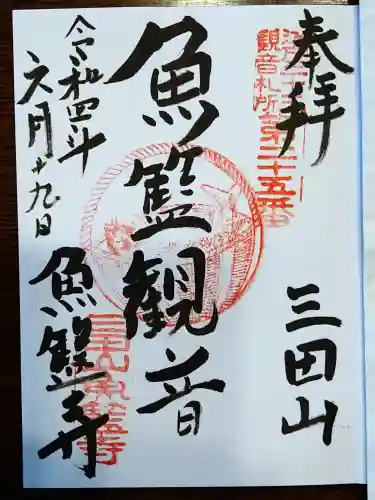 奉拝
三田山
江戸三十三
観音札所第二十五番
魚籃観音
令和四年
六月十九日
魚籃寺